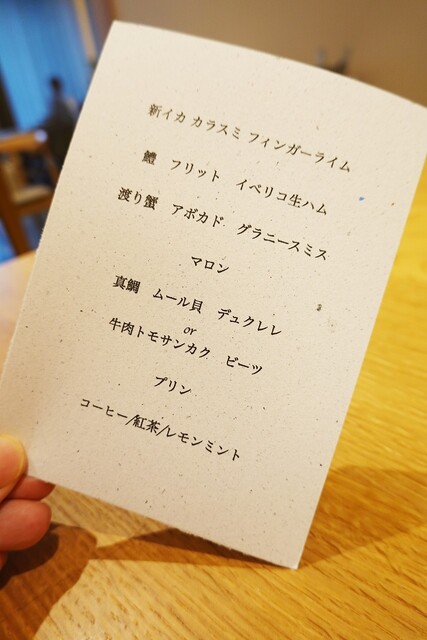 新イカ カラスミ フィンガーライム
鱧 フリット イベリコ生ハム
渡り蟹 アボカド グラニースミス
マロン
真鯛 ムール貝 デュクレレ
or
牛肉トモサンカク ビーツ
プリン
コーヒー/紅茶/レモンミント